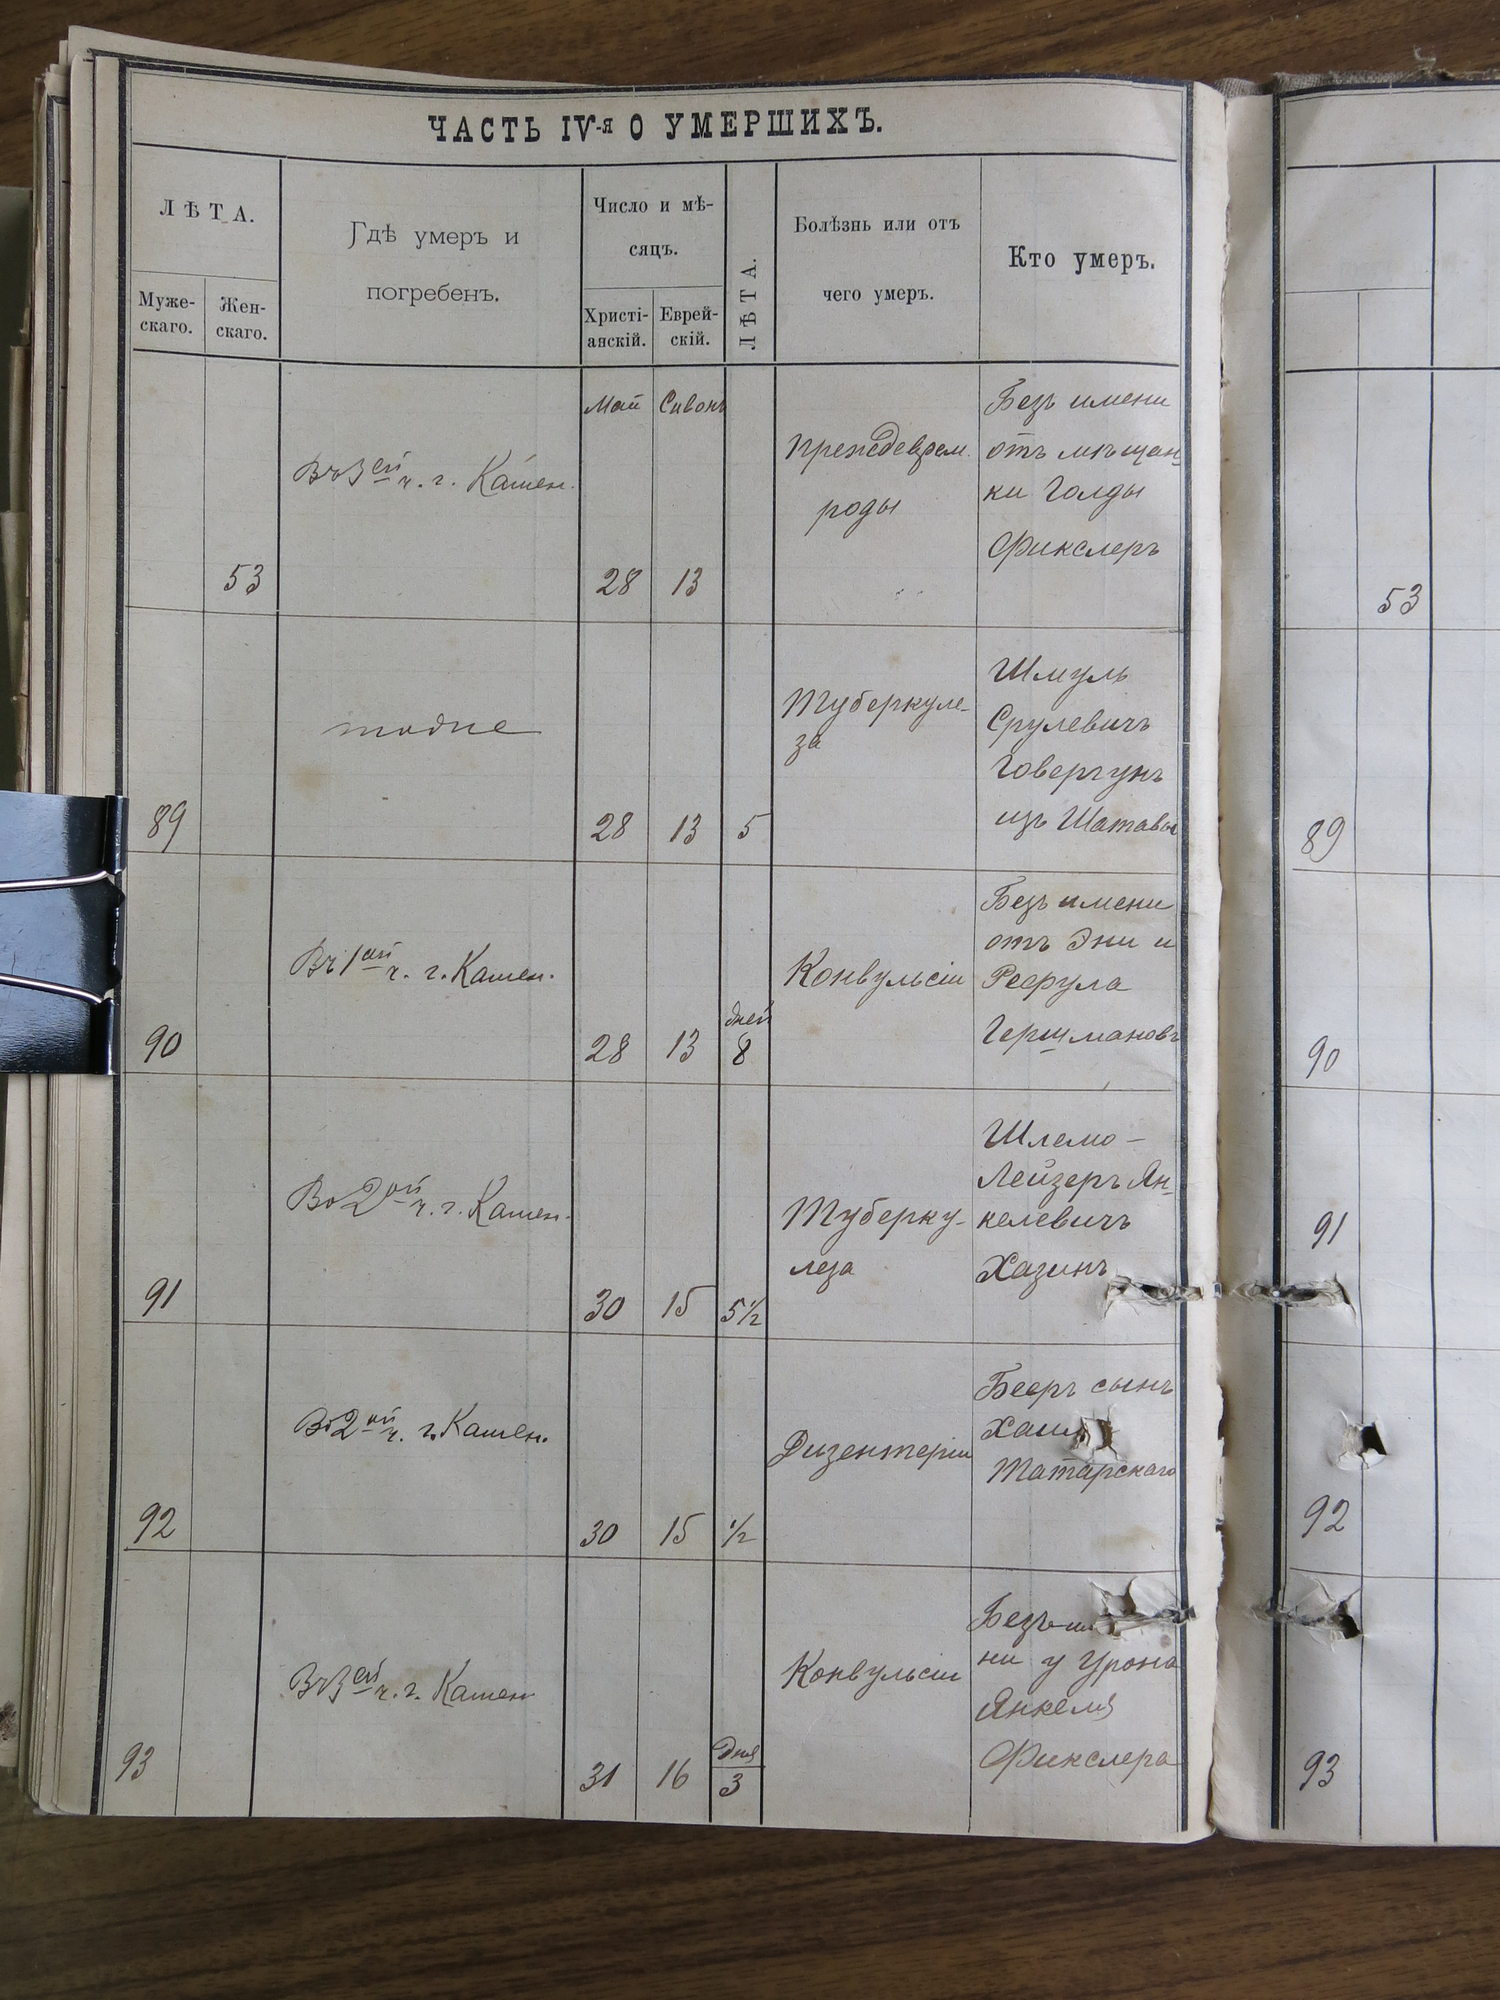 ЧАСТЬ IV-я О УМЕРШИХЪ.
ЛѢТА.
Муже-
скаго.
Жен-
скаго.
Гдѣ умеръ и
погребенъ.
Число и мѣ-
сяцъ.
Христі-
анскій.
Еврей-
скій.
ЛѢТА.
Болѣзнь или отъ
чего умеръ.
Кто умеръ.
53
Въ 3ей ч. г. Камен.
Май
28
Сивонъ
13
преждеврем.
роды
Безъ имени
отъ мѣщан-
ки Голды
Фикслеръ
53
89
тодпе
28
13
5
Туберкуле-
за
Шмуль
Срулевичъ
Говергунъ
изъ Шатавы
89
90
Въ 1ой ч. г. Камен.
28
13
дней
8
Конвульсіи
Безъ имени
отъ Эни и
Рефула
Гершмановъ
90
91
Во 2ой ч. г. Камен.
30
15
5 1/2
Туберку-
леза
Шлемо-
Лейзеръ Ян-
келевичъ
Хазинъ
91
92
Во 2ой ч. г. Камен.
30
15
1/2
Дизентеріи
Бееръ сынъ
Татарскаго
92
93
Въ 3ей ч. г. Камен
31
16
Дня
3
Конвульсіи
Безъ
ни у Урона
Янкеля
Фикслера
93